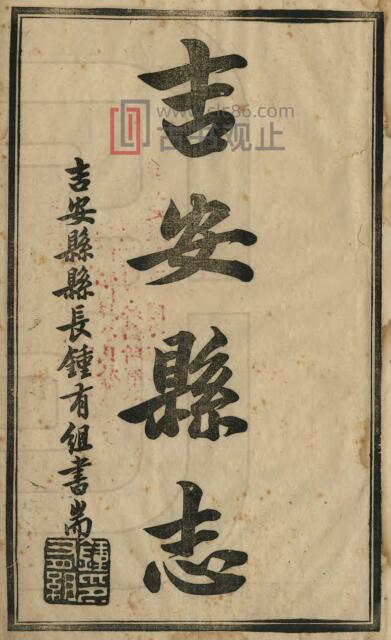 吉安縣志
吉安縣縣長鍾有組書耑
www.clc86.com
古书观止